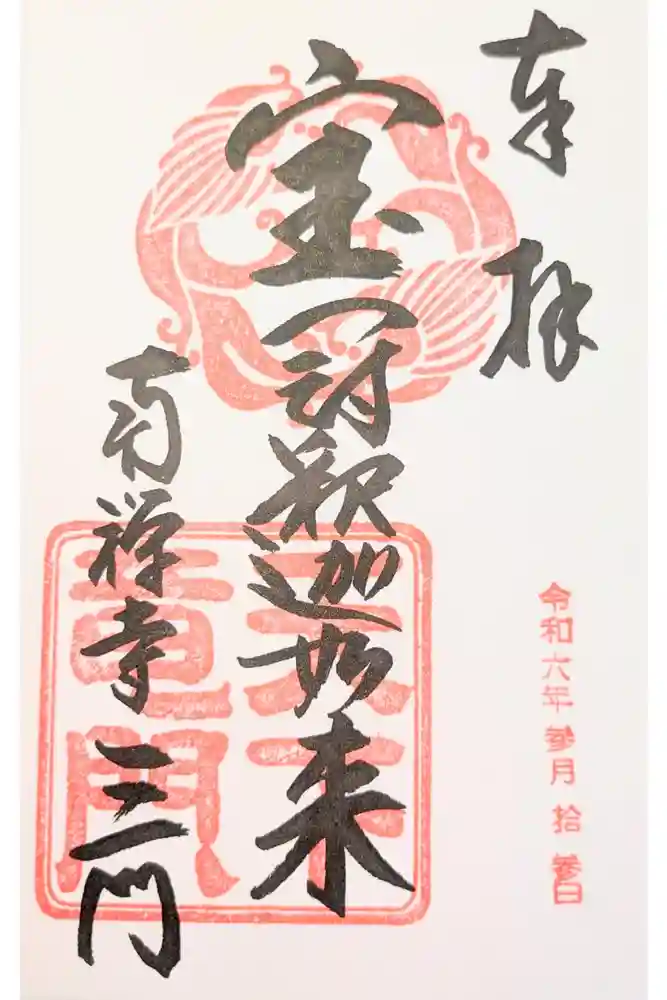 奉拝
令和六年参月拾参日
宝冠釈迦如来
南禅寺三門
天下
竜門